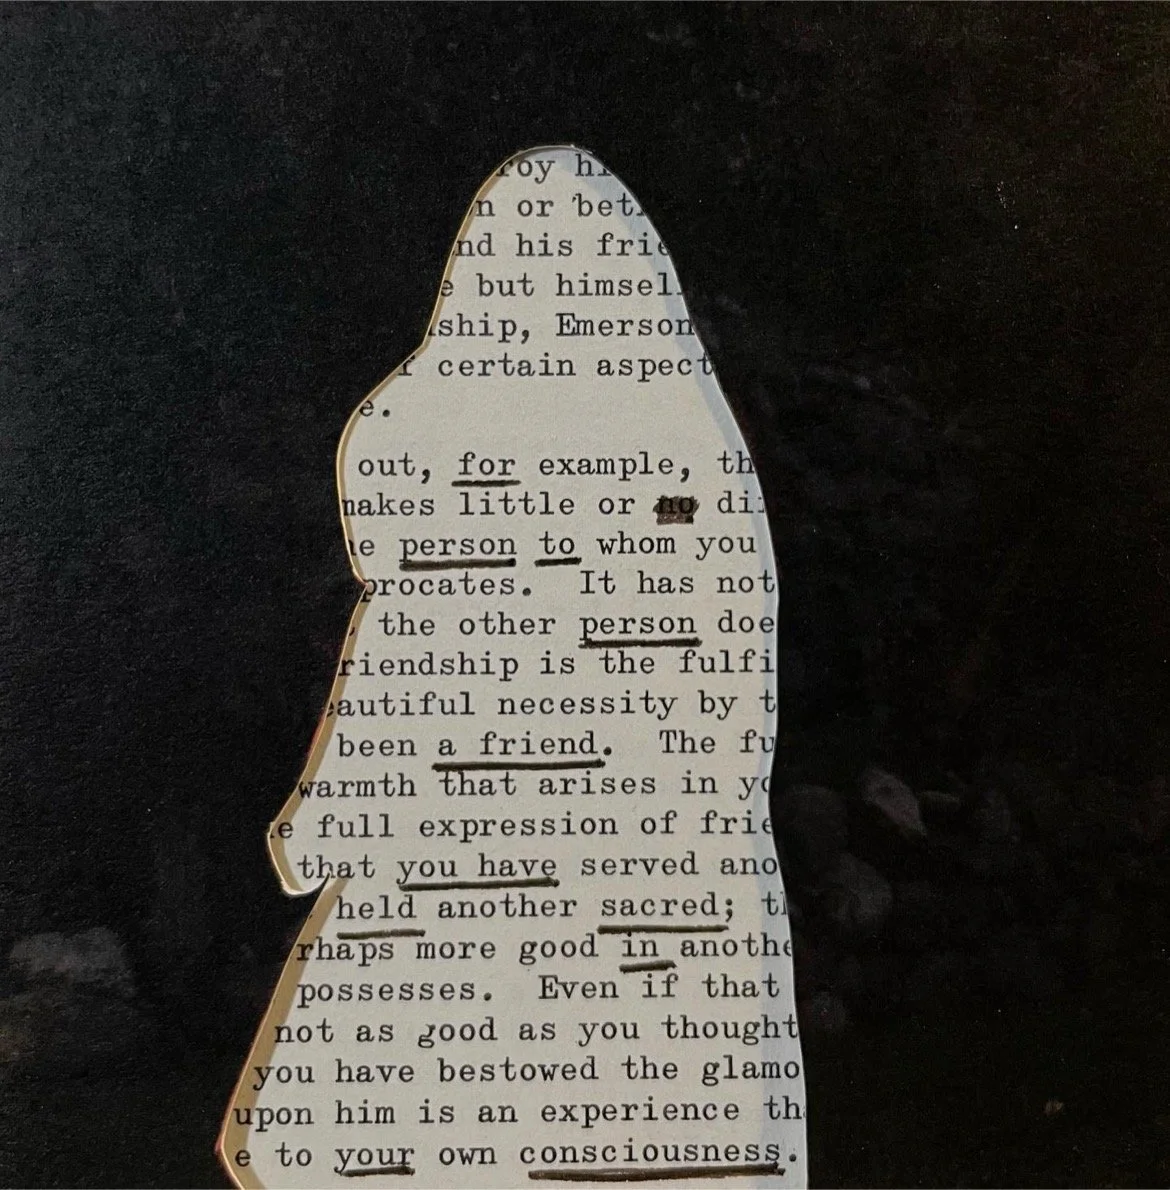 roy hi
n or bet
nd his frie
e but himsel
ship, Emerson
f certain aspect
e.
out, for example, th
makes little or no di
e person to whom you
procates. It has not
the other person doe
riendship is the fulfi
eautiful necessity by t
been a friend. The fu
warmth that arises in yo
e full expression of frie
that you have served ano
held another sacred; th
rhaps more good in anothe
possesses. Even if that
not as good as you thought
you have bestowed the glamo
upon him is an experience th
e to your own consciousness.